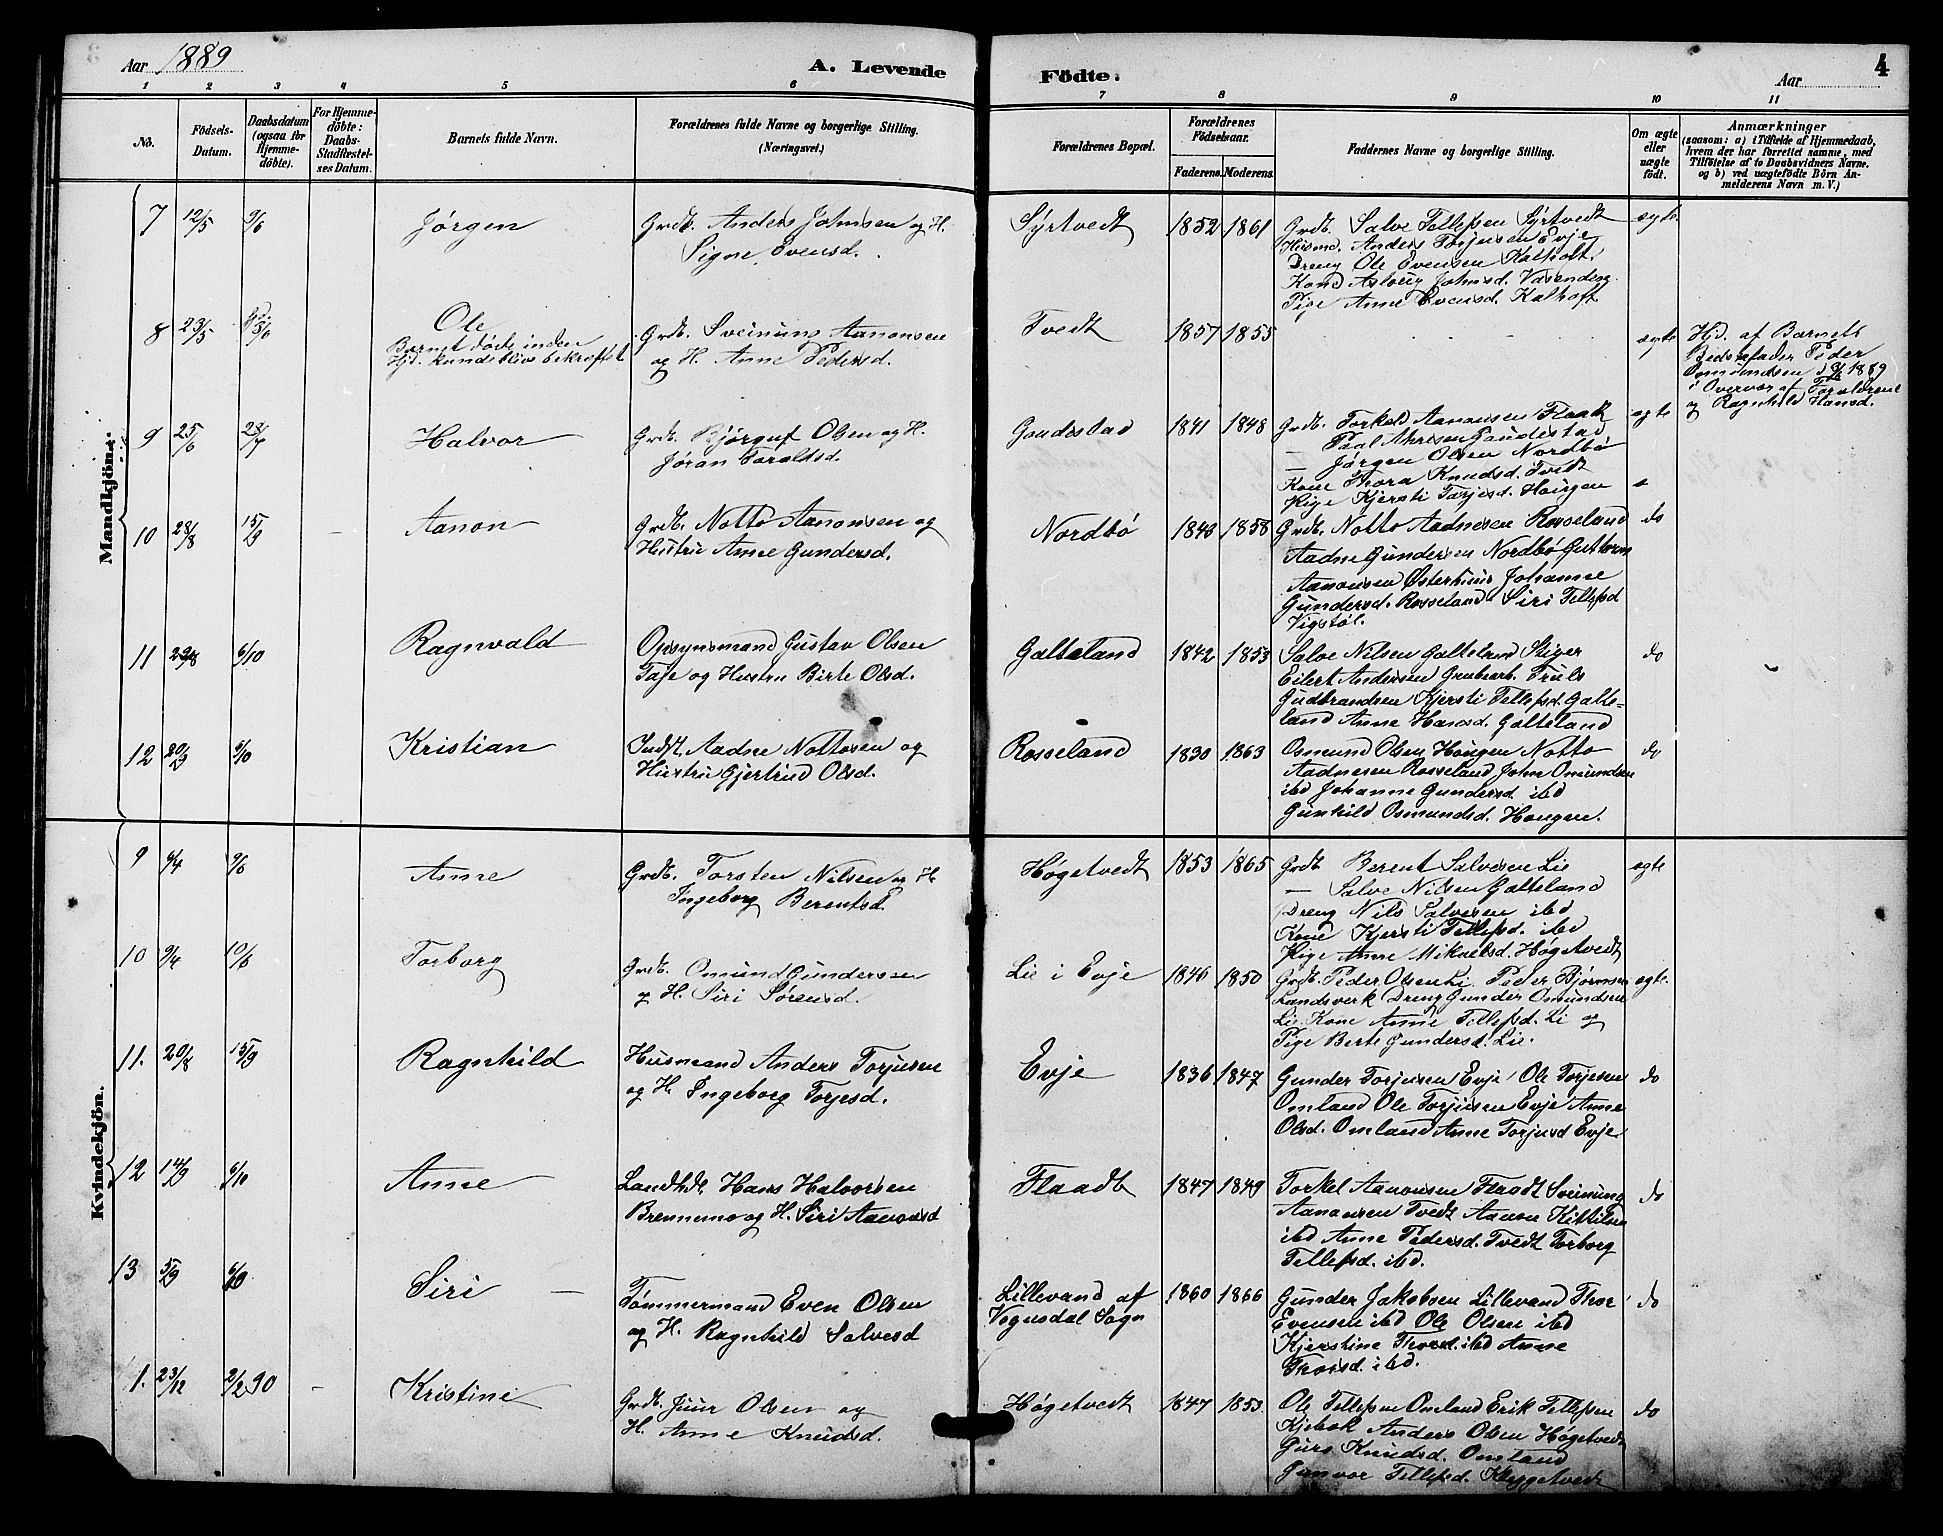 Aar 1889
A. Levende
Födte.
Aar
4
1 2 3 4 5 6 7 8 9 10 11
No.
Födsels-
Datum.
Daabsdatum
(ogsaa for
Hjemme-
döbte).
For Hjemme-
döbte:
Daabs-
Stadfæstel-
ses Datum.
Barnets fulde Navn.
Forældrenes fulde Navne og borgerlige Stilling.
(Næringsvei.)
Forældrenes Bopæl.
Forældrenes
Födselsaar.
Faderens. Moderens.
Faddernes Navne og borgerlige Stilling.
Om ægte
eller
uægte
födt.
Anmærkninger
(saasom: a) i Tilfælde af Hjemmedaab,
hvem der har forrettet samme, med
Tilföielse af to Daabsvidners Navne,
og b) ved uægtefödte Börn An-
melderens Navn m. V.)
Mandkjön.
7 12/5 9/6 Jørgen
Grdb. Anders Johnsen og H.
Signe Evensd.
Syrtvedt 1852 1861
Grdb. Salve Tellefsen Syrtvedt
Husmd. Anders Torjusen Evje
Dreng Ole Evensen Kalhoft
Kone Aslaug Johnsd. Vasendeg
Pige Anne Evensd. Kalhoft
ægte
8 23/5 Ole
Barnet døde inden
Hjd. kunde blive bekræftet
Grdb. Sveinung Aanonsen
og H. Anne Pedersd.
Tvedt 1857 1855
ægte
Hjd. af Barnets
Bedstefader Peder
Omundsen 1889
i Overvær af Forældrene
og Ragnhild Hansd.
9 25/6 28/7 Halvor
Grdb. Bjørguf Olsen og H.
Jøran Taraldsd.
Gaudestad 1841 1848
Grdb. Torkeld Aanonsen Flaat
— Paal Gaudestad
— Jørgen Olsen Nordbø
Kone Thora Knudsd. Tvedt
Pige Kjersti Tarjesd. Haugen
ægte
10 28/8 15/9 - Aanon
Grdb. Notto Aanonsen og
Hustru Anne Gundersd.
Nordbö 1848 1858
Grdb. Notto Aadnesen Rosseland
Aadne Gundersen Nordbø Guttorm
Aanonsen Østerhuus Johanne
Gundersd. Rosseland Siri Tellefsd
Vigstøl.
do
11 6/10 Ragnvald
Opsynsmand Gustav Olsen
Taje og Hustru Birte Olsd.
Galteland 1842 1853
Salve Nilsen Galteland Stiger
Eilert Andersen Grubearb. Truls
Gudbrandsen Kjersti Tellefsd. Galte-
land Anne Hansd. Galteland
do
12 20/9 6/10 Kristian
Indst. Aadne Nottosen og
Hustru Gjertrud Olsd.
Rosseland 1830 1863
Osmund Olsen Haugen Notto
Aadnesen Rosseland John Omundsen
ibd Johanne Gundersd ibd
Gunhild Osmundsd. Haugen.
do
Kvindekjön.
9 6/4 9/6 Anne
Grdb. Torsten Nilsen og H
Ingeborg Berentsd
Høgetvedt 1853 1865
Grdb Berent Salvesen Lie
— Salve Nilsen Galteland
Dreng Nils Salvesen ibd
Kone Kjersti Tellefsd. ibd
Pige Anne Mikaelsd. Høgetvedt
ægte
10 9/4 10/6 Torborg
Grdb. Omund Gundersen
og H. Siri Sørensd.
Lie i Evje 1846 1850
Grdb. Peder Olsen Li Peder Bjørnsen
Landsverk Dreng Gunder Omundsen
Lie Kone Anne Tellefsd. Li og
Pige Berte Gundersd. Lie.
ægte.
11. 20/8 15/9 Ragnhild
Husmand Anders Torjusen
og H. Ingeborg Torjesd.
Evje 1836 1847
Gunder Torjusen Evje Ole Torjesen
Omland Ole Torjusen Evje Anne
Olsd. Omland Anne Torjusd Evje
do
12 14/9 6/10 Anne
Landhdl. Hans Halvorsen
Brennemo og H. Siri Aanonsd
Flaadt 1847 1849
Torkel Aanonsen Flaadt Sveinung
Aanonsen Tvedt Aanon Kittilsen
ibd Anne Pedersd. Tvedt Torborg
Tellefsd. ibd.
do
13 5/9 6/10 Siri —
Tømmermand Even Olsen
og H. Ragnhild Salvesd
Lillevand af
Vegusdal Sogn
1860 1866
Gunder Jakobsen Lillevand Thor
Evensen ibd Ole Olsen ibd
Kjerstine Thorsd. ibd Anne
Thorsd. ibd.
do
1. 23/12 2/2 90 - Kristine
Grdb. Juur Olsen og
H. Anne Knudsd.
Høgetvedt 1847 1853.
Ole Tellefsen Omland Erik Tellefsen
Kjebok Anders Olsen Høgetvedt
Guro Knudsd. Omland
Gunvor Tellefsd. Høggetvedt
do